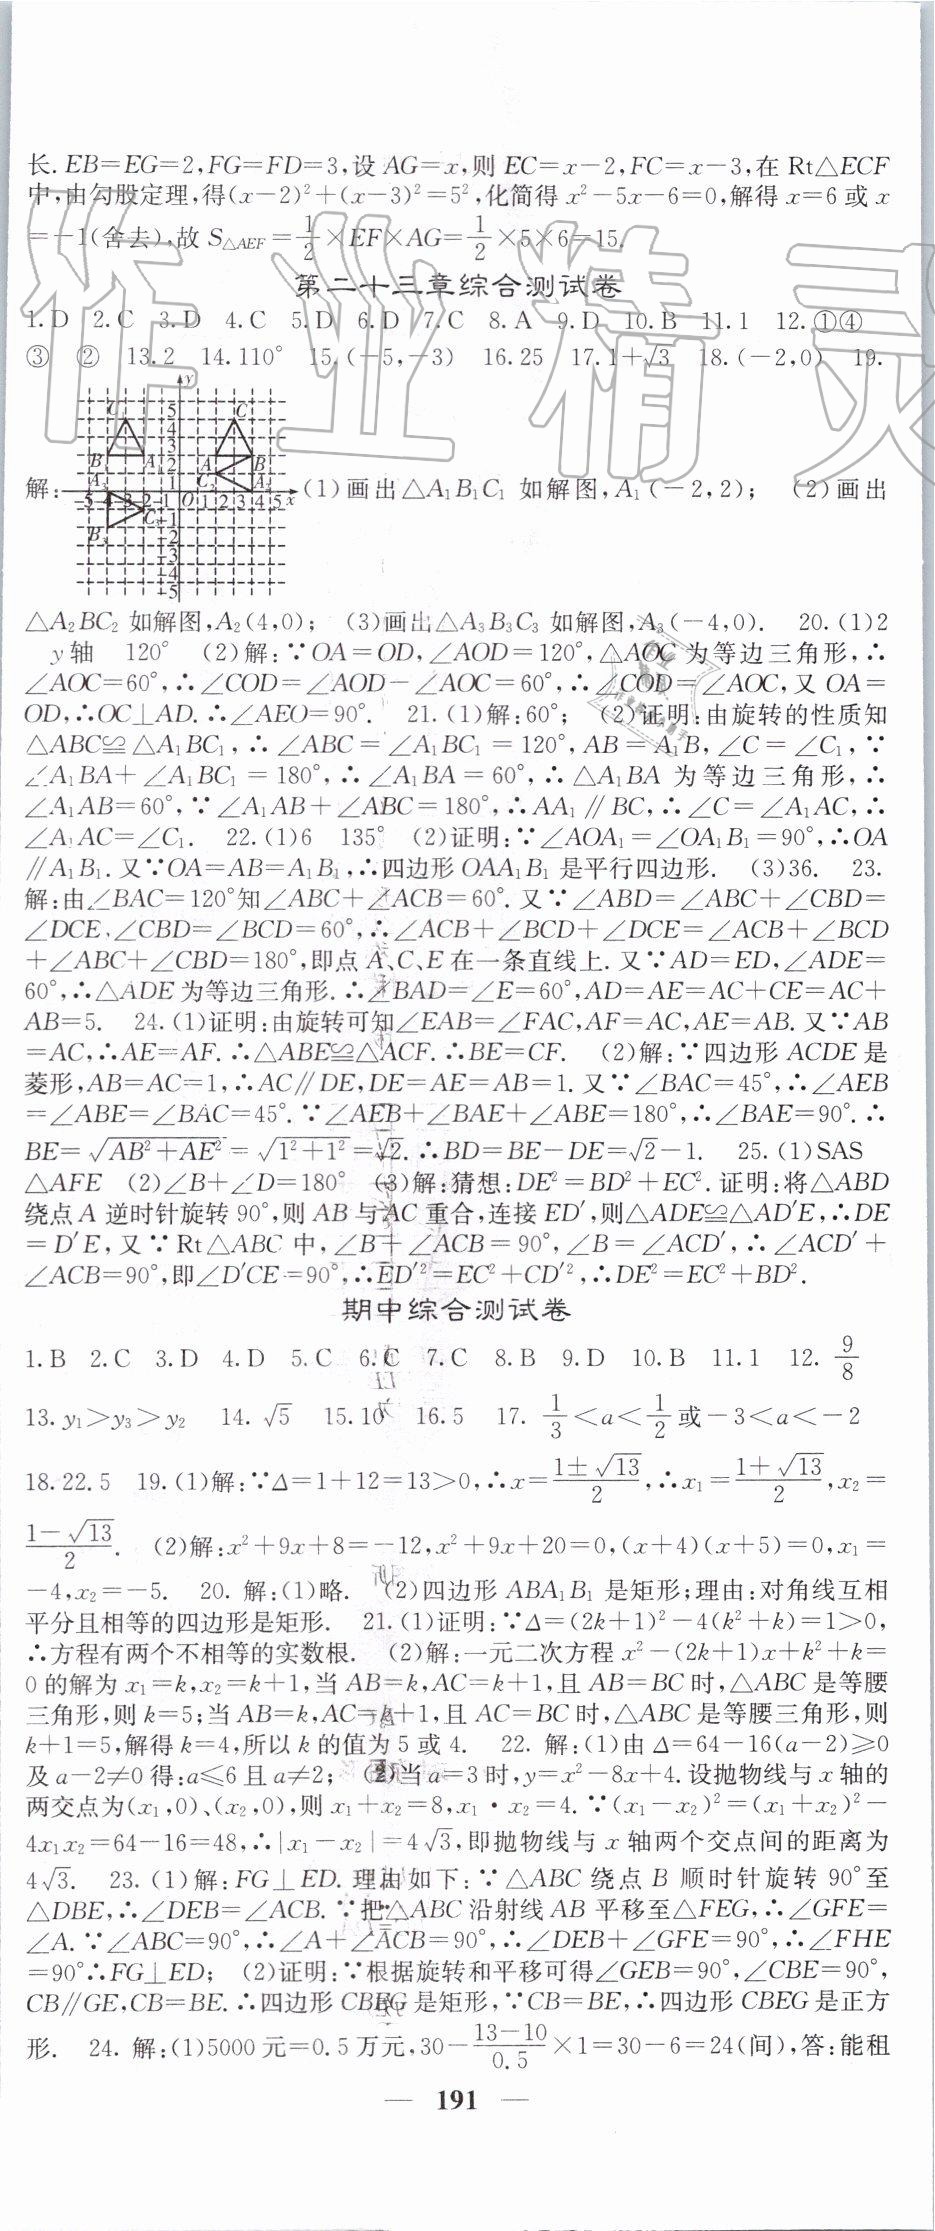 长. EB=EG=2,FG=FD=3,设 AG=x,则 EC=x-2,FC=x-3,在 Rt△ECF
中,由勾股定理,得(x-2)²+(x-3)²=5²,化简得 x²-5x-6=0,解得 x=6 或 x
=-1(舍去),故 S△AEF=1/2×EF×AG=1/2×5×6=15.
第二十三章综合测试卷
1.D 2.C 3.D 4.C 5.D 6.D 7.C 8.A 9.D 10.B 11.1 12.①④
③ ② 13.2 14.110° 15.(-5,-3) 16.25 17.1+√3 18.(-2,0) 19.
解: (1)画出△A₁B₁C₁ 如解图,A₁(-2,2); (2)画出
△A₂BC₂ 如解图,A₂(4,0); (3)画出△A₃B₃C₃ 如解图,A₃(-4,0). 20.(1)2
y轴 120° (2)解:∵OA=OD,∠AOD=120°,△AOC 为等边三角形,∴
∠AOC=60°,∴∠COD=∠AOD-∠AOC=60°,∴∠COD=∠AOC,又 OA=
OD,∴OC⊥AD.∴∠AEO=90°. 21.(1)解:60°; (2)证明:由旋转的性质知
△ABC≌△A₁BC₁,∴∠ABC=∠A₁BC₁=120°,AB=A₁B,∠C=∠C₁,∵
∠A₁BA+∠A₁BC₁=180°,∴∠A₁BA=60°,∴△A₁BA 为等边三角形,∴
∠A₁AB=60°,∵∠A₁AB+∠ABC=180°,∴AA₁∥BC,∴∠C=∠A₁AC,∴
∠A₁AC=∠C₁. 22.(1)6 135° (2)证明:∵∠AOA₁=∠OA₁B₁=90°,∴OA
∥A₁B₁.又∵OA=AB=A₁B₁,∴四边形 OAA₁B₁ 是平行四边形. (3)36. 23.
解:由∠BAC=120°知∠ABC+∠ACB=60°.又∵∠ABD=∠ABC+∠CBD=
∠DCE,∠CBD=∠BCD=60°,∴∠ACB+∠BCD+∠DCE=∠ACB+∠BCD
+∠ABC+∠CBD=180°,即点 A、C、E 在一条直线上.又∵AD=ED,∠ADE=
60°,∴△ADE 为等边三角形.∴∠BAD=∠E=60°,AD=AE=AC+CE=AC+
AB=5. 24.(1)证明:由旋转可知∠EAB=∠FAC,AF=AC,AE=AB.又∵AB
=AC,∴AE=AF.∴△ABE≌△ACF.∴BE=CF. (2)解:∵四边形 ACDE 是
菱形,AB=AC=1,∴AC∥DE,DE=AE=AB=1.又∵∠BAC=45°,∴∠AEB
=∠ABE=∠BAC=45°.∵∠AEB+∠BAE+∠ABE=180°,∴∠BAE=90°.∴
BE=√(AB²+AE²)=√(1²+1²)=√2.∴BD=BE-DE=√2-1. 25.(1)SAS
△AFE (2)∠B+∠D=180° (3)解:猜想:DE²=BD²+EC².证明:将△ABD
绕点 A 逆时针旋转 90°,则 AB 与 AC 重合,连接 ED′,则△ADE≌△AD′E,∴DE
=D′E,又∵Rt△ABC 中,∠B+∠ACB=90°,∠B=∠ACD′,∴∠ACD′+
∠ACB=90°,即∠D′CE=90°,∴ED′²=EC²+CD′²,∴DE²=EC²+BD².
期中综合测试卷
1.B 2.C 3.D 4.D 5.C 6.C 7.C 8.B 9.D 10.B 11.1 12. 9/8
13. y₁>y₃>y₂ 14. √5 15.10 16.5 17. 1/3<a<1/2或-3<a<-2
18.22.5 19.(1)解:∵Δ=1+12=13>0,∴x=(1±√13)/2,∴x₁=(1+√13)/2,x₂=
(1-√13)/2. (2)解:x²+9x+8=-12,x²+9x+20=0,(x+4)(x+5)=0,x₁=
-4,x₂=-5. 20. 解:(1)略. (2)四边形 ABA₁B₁ 是矩形;理由:对角线互相
平分且相等的四边形是矩形. 21.(1)证明:∵Δ=(2k+1)²-4(k²+k)=1>0,
∴方程有两个不相等的实数根. (2)解:一元二次方程 x²-(2k+1)x+k²+k=
0 的解为 x₁=k,x₂=k+1,当 AB=k,AC=k+1,且 AB=BC 时,△ABC 是等腰
三角形,则 k=5;当 AB=k,AC=k+1,且 AC=BC 时,△ABC 是等腰三角形,则
k+1=5,解得 k=4,所以 k 的值为 5 或 4. 22. 解:(1)由 Δ=64-16(a-2)≥0
及 a-2≠0 得:a≤6 且 a≠2; (2)当 a=3 时,y=x²-8x+4.设抛物线与 x 轴的
两交点为(x₁,0)、(x₂,0),则 x₁+x₂=8,x₁·x₂=4.∵(x₁-x₂)²=(x₁+x₂)²-
4x₁x₂=64-16=48,∴|x₁-x₂|=4√3,即抛物线与 x 轴两个交点间的距离为
4√3. 23.(1)解:FG⊥ED.理由如下:∵△ABC 绕点 B 顺时针旋转 90°至
△DBE,∴∠DEB=∠ACB.∵把△ABC 沿射线 AB 平移至△FEG,∴∠GFE=
∠A.∵∠ABC=90°,∴∠A+∠ACB=90°,∴∠DEB+∠GFE=90°,∴∠FHE
=90°∴FG⊥ED; (2)证明:∵根据旋转和平移可得∠GEB=90°,∠CBE=90°,
CB∥GE,CB=BE.∴四边形 CBEG 是矩形,∵CB=BE,∴四边形 CBEG 是正方
形. 24. 解:(1)5000 元=0.5 万元,30-(13-10)/0.5×1=30-6=24(间),答:能租
— 191 —
作业精灵